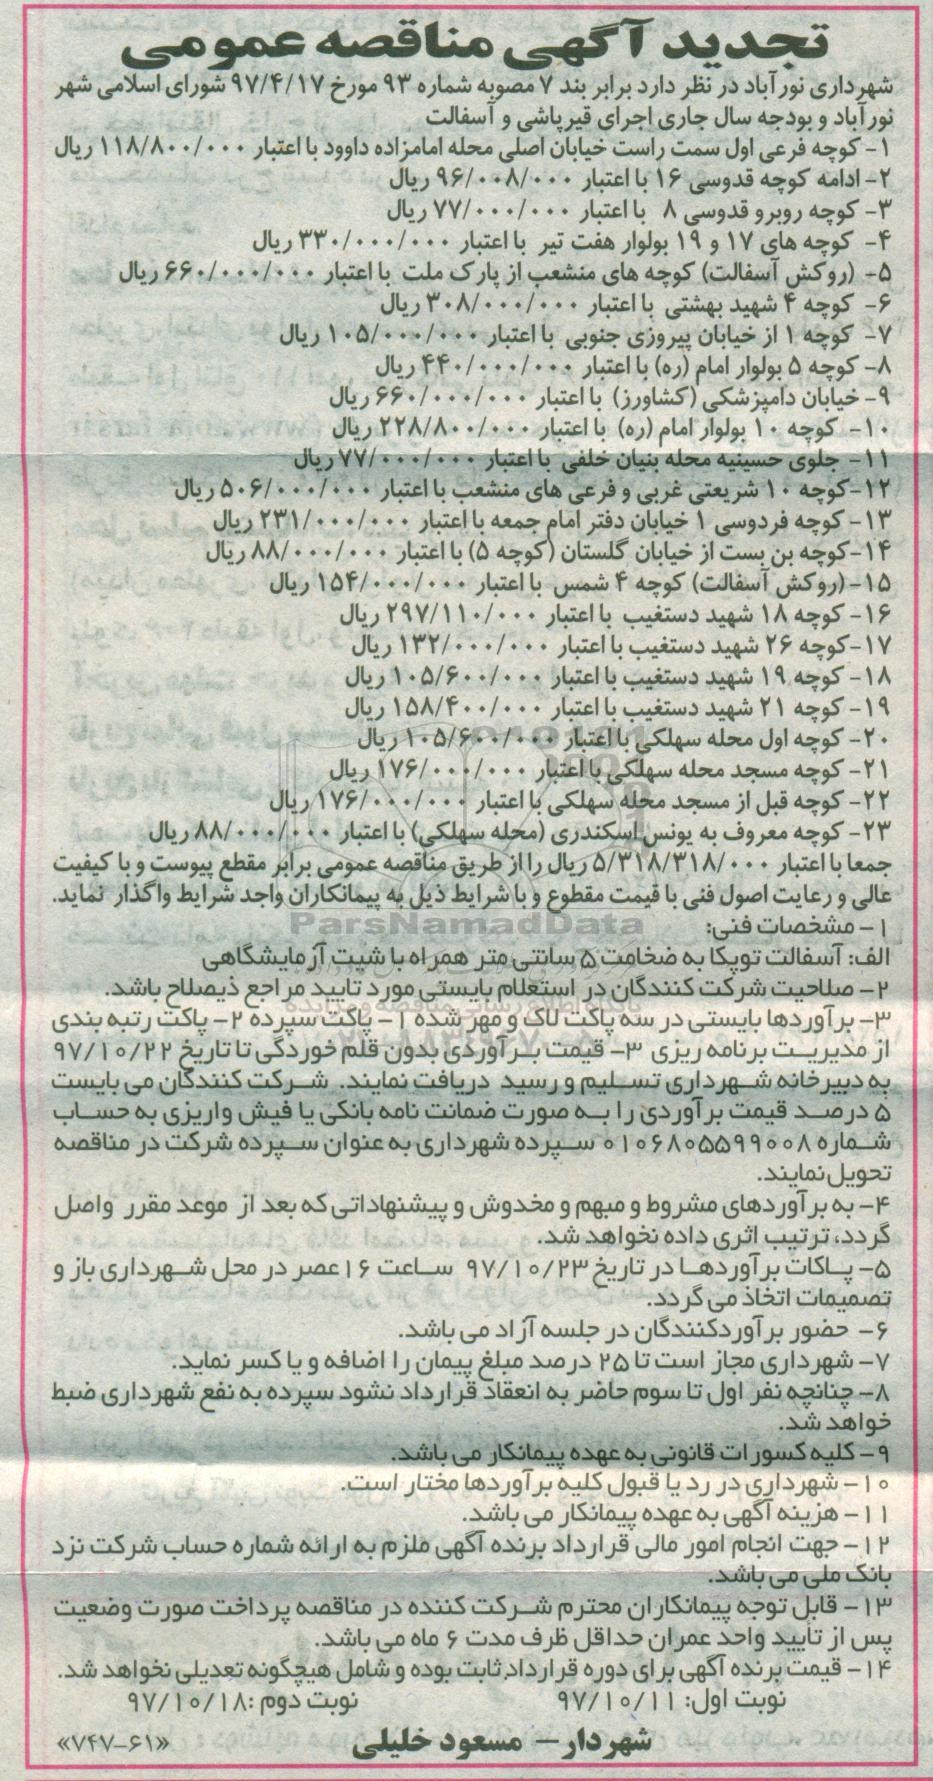 تجدید آگهی مناقصه عمومی
شهرداری نورآباد در نظر دارد برابر بند ۷ مصوبه شماره ۹۳ مورخ ۹۷/۴/۱۷ شورای اسلامی شهر
نورآباد و بودجه سال جاری اجرای قیرپاشی و آسفالت
۱- کوچه فرعی اول سمت راست خیابان اصلی محله امامزاده داوود با اعتبار ۱۱۸/۸۰۰/۰۰۰ ریال
۲- ادامه کوچه قدوسی ۱۶ با اعتبار ۹۶/۰۰۸/۰۰۰ ریال
۳- کوچه روبرو قدوسی ۸ با اعتبار ۷۷/۰۰۰/۰۰۰ ریال
۴- کوچه های ۱۷ و ۱۹ بولوار هفت تیر با اعتبار ۳۳۰/۰۰۰/۰۰۰ ریال
۵- (روکش آسفالت) کوچه های منشعب از پارک ملت با اعتبار ۶۶۰/۰۰۰/۰۰۰ ریال
۶- کوچه ۴ شهید بهشتی با اعتبار ۳۰۸/۰۰۰/۰۰۰ ریال
۷- کوچه ۱ از خیابان پیروزی جنوبی با اعتبار ۱۰۵/۰۰۰/۰۰۰ ریال
۸- کوچه ۵ بولوار امام (ره) با اعتبار ۴۴۰/۰۰۰/۰۰۰ ریال
۹- خیابان دامپزشکی (کشاورز) با اعتبار ۶۶۰/۰۰۰/۰۰۰ ریال
۱۰- کوچه ۱۰ بولوار امام (ره) با اعتبار ۲۲۸/۸۰۰/۰۰۰ ریال
۱۱- جلوی حسینیه محله بنیان خلفی با اعتبار ۷۷/۰۰۰/۰۰۰ ریال
۱۲-کوچه ۱۰ شریعتی غربی و فرعی های منشعب با اعتبار ۵۰۶/۰۰۰/۰۰۰ ریال
۱۳- کوچه فردوسی ۱ خیابان دفتر امام جمعه با اعتبار ۲۳۱/۰۰۰/۰۰۰ ریال
۱۴-کوچه بن بست از خیابان گلستان (کوچه ۵) با اعتبار ۸۸/۰۰۰/۰۰۰ ریال
۱۵-(روکش آسفالت) کوچه ۴ شمس با اعتبار ۱۵۴/۰۰۰/۰۰۰ ریال
۱۶- کوچه ۱۸ شهید دستغیب با اعتبار ۲۹۷/۱۱۰/۰۰۰ ریال
۱۷-کوچه ۲۶ شهید دستغیب با اعتبار ۱۳۲/۰۰۰/۰۰۰ ریال
۱۸- کوچه ۱۹ شهید دستغیب با اعتبار ۱۰۵/۶۰۰/۰۰۰ ریال
۱۹- کوچه ۲۱ شهید دستغیب با اعتبار ۱۵۸/۴۰۰/۰۰۰ ریال
۲۰- کوچه اول محله سهلکی با اعتبار ۱۰۵/۶۰۰/۰۰۰ ریال
۲۱- کوچه مسجد محله سهلکی با اعتبار ۱۷۶/۰۰۰/۰۰۰ ریال
۲۲- کوچه قبل از مسجد محله سهلکی با اعتبار ۱۷۶/۰۰۰/۰۰۰ ریال
۲۳- کوچه معروف به یونس اسکندری (محله سهلکی) با اعتبار ۸۸/۰۰۰/۰۰۰ ریال
جمعا با اعتبار ۵/۳۱۸/۳۱۸/۰۰۰ ریال را از طریق مناقصه عمومی برابر مقطع پیوست و با کیفیت
عالی و رعایت اصول فنی با قیمت مقطوع و با شرایط ذیل به پیمانکاران واجد شرایط واگذار نماید.
ParsNamadData
۱- مشخصات فنی:
الف: آسفالت توپکا به ضخامت ۵ سانتی متر همراه با شیت آزمایشگاهی
۲- صلاحیت شرکت کنندگان در استعلام بایستی مورد تایید مراجع ذیصلاح باشد.
۳- برآوردها بایستی در سه پاکت لاک و مهر شده ۱- پاکت سپرده ۲- پاکت رتبه بندی
از مدیریت برنامه ریزی ۳- قیمت برآوردی بدون قلم خوردگی تا تاریخ ۹۷/۱۰/۲۲
به دبیرخانه شهرداری تسلیم و رسید دریافت نمایند. شرکت کنندگان می بایست
۵ درصد قیمت برآوردی را به صورت ضمانت نامه بانکی یا فیش واریزی به حساب
شماره ۰۱۰۶۸۰۵۵۹۹۰۰۸ سپرده شهرداری به عنوان سپرده شرکت در مناقصه
تحویل نمایند.
۴- به برآوردهای مشروط و مبهم و مخدوش و پیشنهاداتی که بعد از موعد مقرر واصل
گردد، ترتیب اثری داده نخواهد شد.
۵- پاکات برآوردها در تاریخ ۹۷/۱۰/۲۳ ساعت ۱۶عصر در محل شهرداری باز و
تصمیمات اتخاذ می گردد.
۶- حضور برآوردکنندگان در جلسه آزاد می باشد.
۷- شهرداری مجاز است تا ۲۵ درصد مبلغ پیمان را اضافه و یا کسر نماید.
۸- چنانچه نفر اول تا سوم حاضر به انعقاد قرارداد نشود سپرده به نفع شهرداری ضبط
خواهد شد.
۹- کلیه کسورات قانونی به عهده پیمانکار می باشد.
۱۰- شهرداری در رد یا قبول کلیه برآوردها مختار است.
۱۱- هزینه آگهی به عهده پیمانکار می باشد.
۱۲- جهت انجام امور مالی قرارداد برنده آگهی ملزم به ارائه شماره حساب شرکت نزد
بانک ملی می باشد.
۱۳- قابل توجه پیمانکاران محترم شرکت کننده در مناقصه پرداخت صورت وضعیت
پس از تایید واحد عمران حداقل ظرف مدت ۶ ماه می باشد.
۱۴- قیمت برنده آگهی برای دوره قرارداد ثابت بوده و شامل هیچگونه تعدیلی نخواهد شد.
نوبت اول: ۹۷/۱۰/۱۱ نوبت دوم: ۹۷/۱۰/۱۸
شهردار- مسعود خلیلی
«۷۴۷-۶۱»